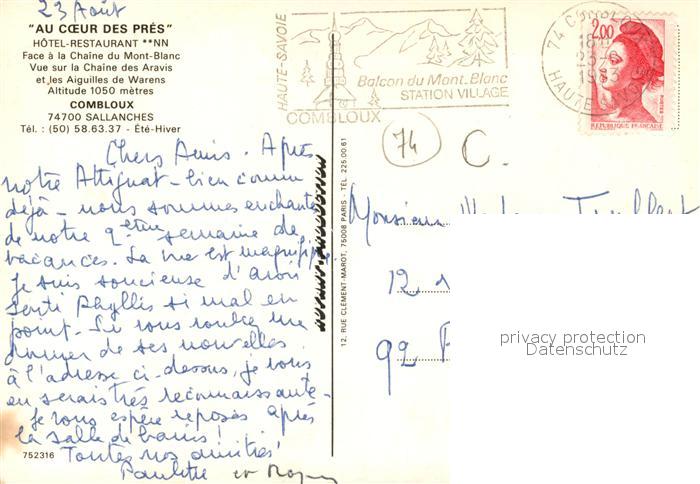 23 Août
"AU CŒUR DES PRÉS"
HÔTEL-RESTAURANT **NN
Face à la Chaîne du Mont-Blanc
Vue sur la Chaîne des Aravis
et les Aiguilles de Warens
Altitude 1050 mètres
COMBLOUX
74700 SALLANCHES
Tél. : (50) 58.63.37 - Été-Hiver
HAUTE-SAVOIE
Balcon du Mont.Blanc
STATION VILLAGE
COMBLOUX
74 COMBLOUX
18H
23-8
1983
HAUTE
2,00
REPUBLIQUE FRANÇAISE
74
C.
Chers Amis. Après
notre Attignat - bien connu
déjà - nous sommes enchantés
de notre 2ème semaine de
vacances. La vue est magnifique.
Je suis soucieuse d'avoir
senti Phyllis si mal en
point. Si vous voulez me
donner de ses nouvelles
à l'adresse ci-dessus, je vous
en serais très reconnaissante -
Je vous espère reposés après
la salle de bains!
Toutes nos amitiés
Paulette et
752316
12, RUE CLÉMENT-MAROT, 75008 PARIS - TÉL. 225.00.61
Monsieur
12
92
privacy protection
Datenschutz